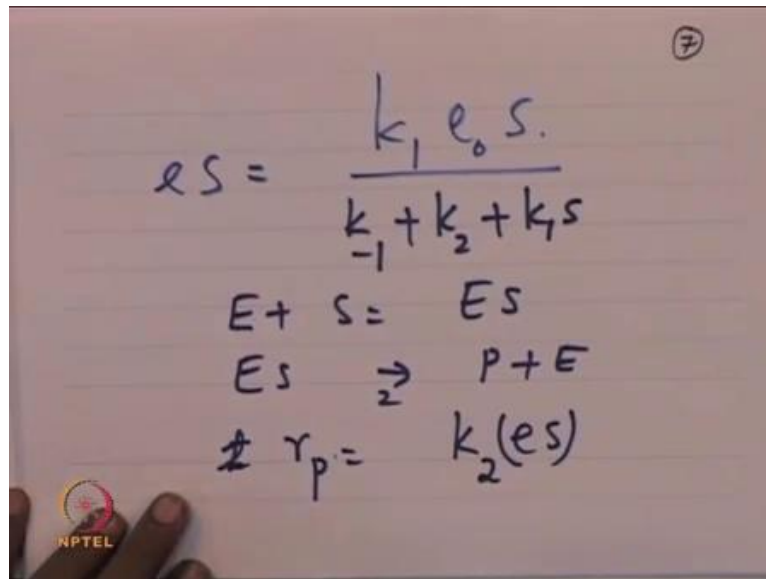 ⑦
es = k₁ e₀ s.
k₋₁ + k₂ + k₁s
E + S = ES
ES →₂ P + E
r_p = k₂(es)
NPTEL